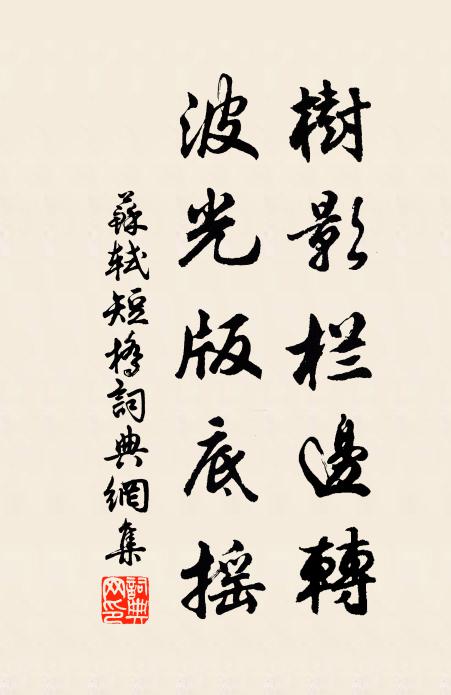 樹影栏邊轉
波光版底摇
蘇軾短橋詞典網集
詞典網印